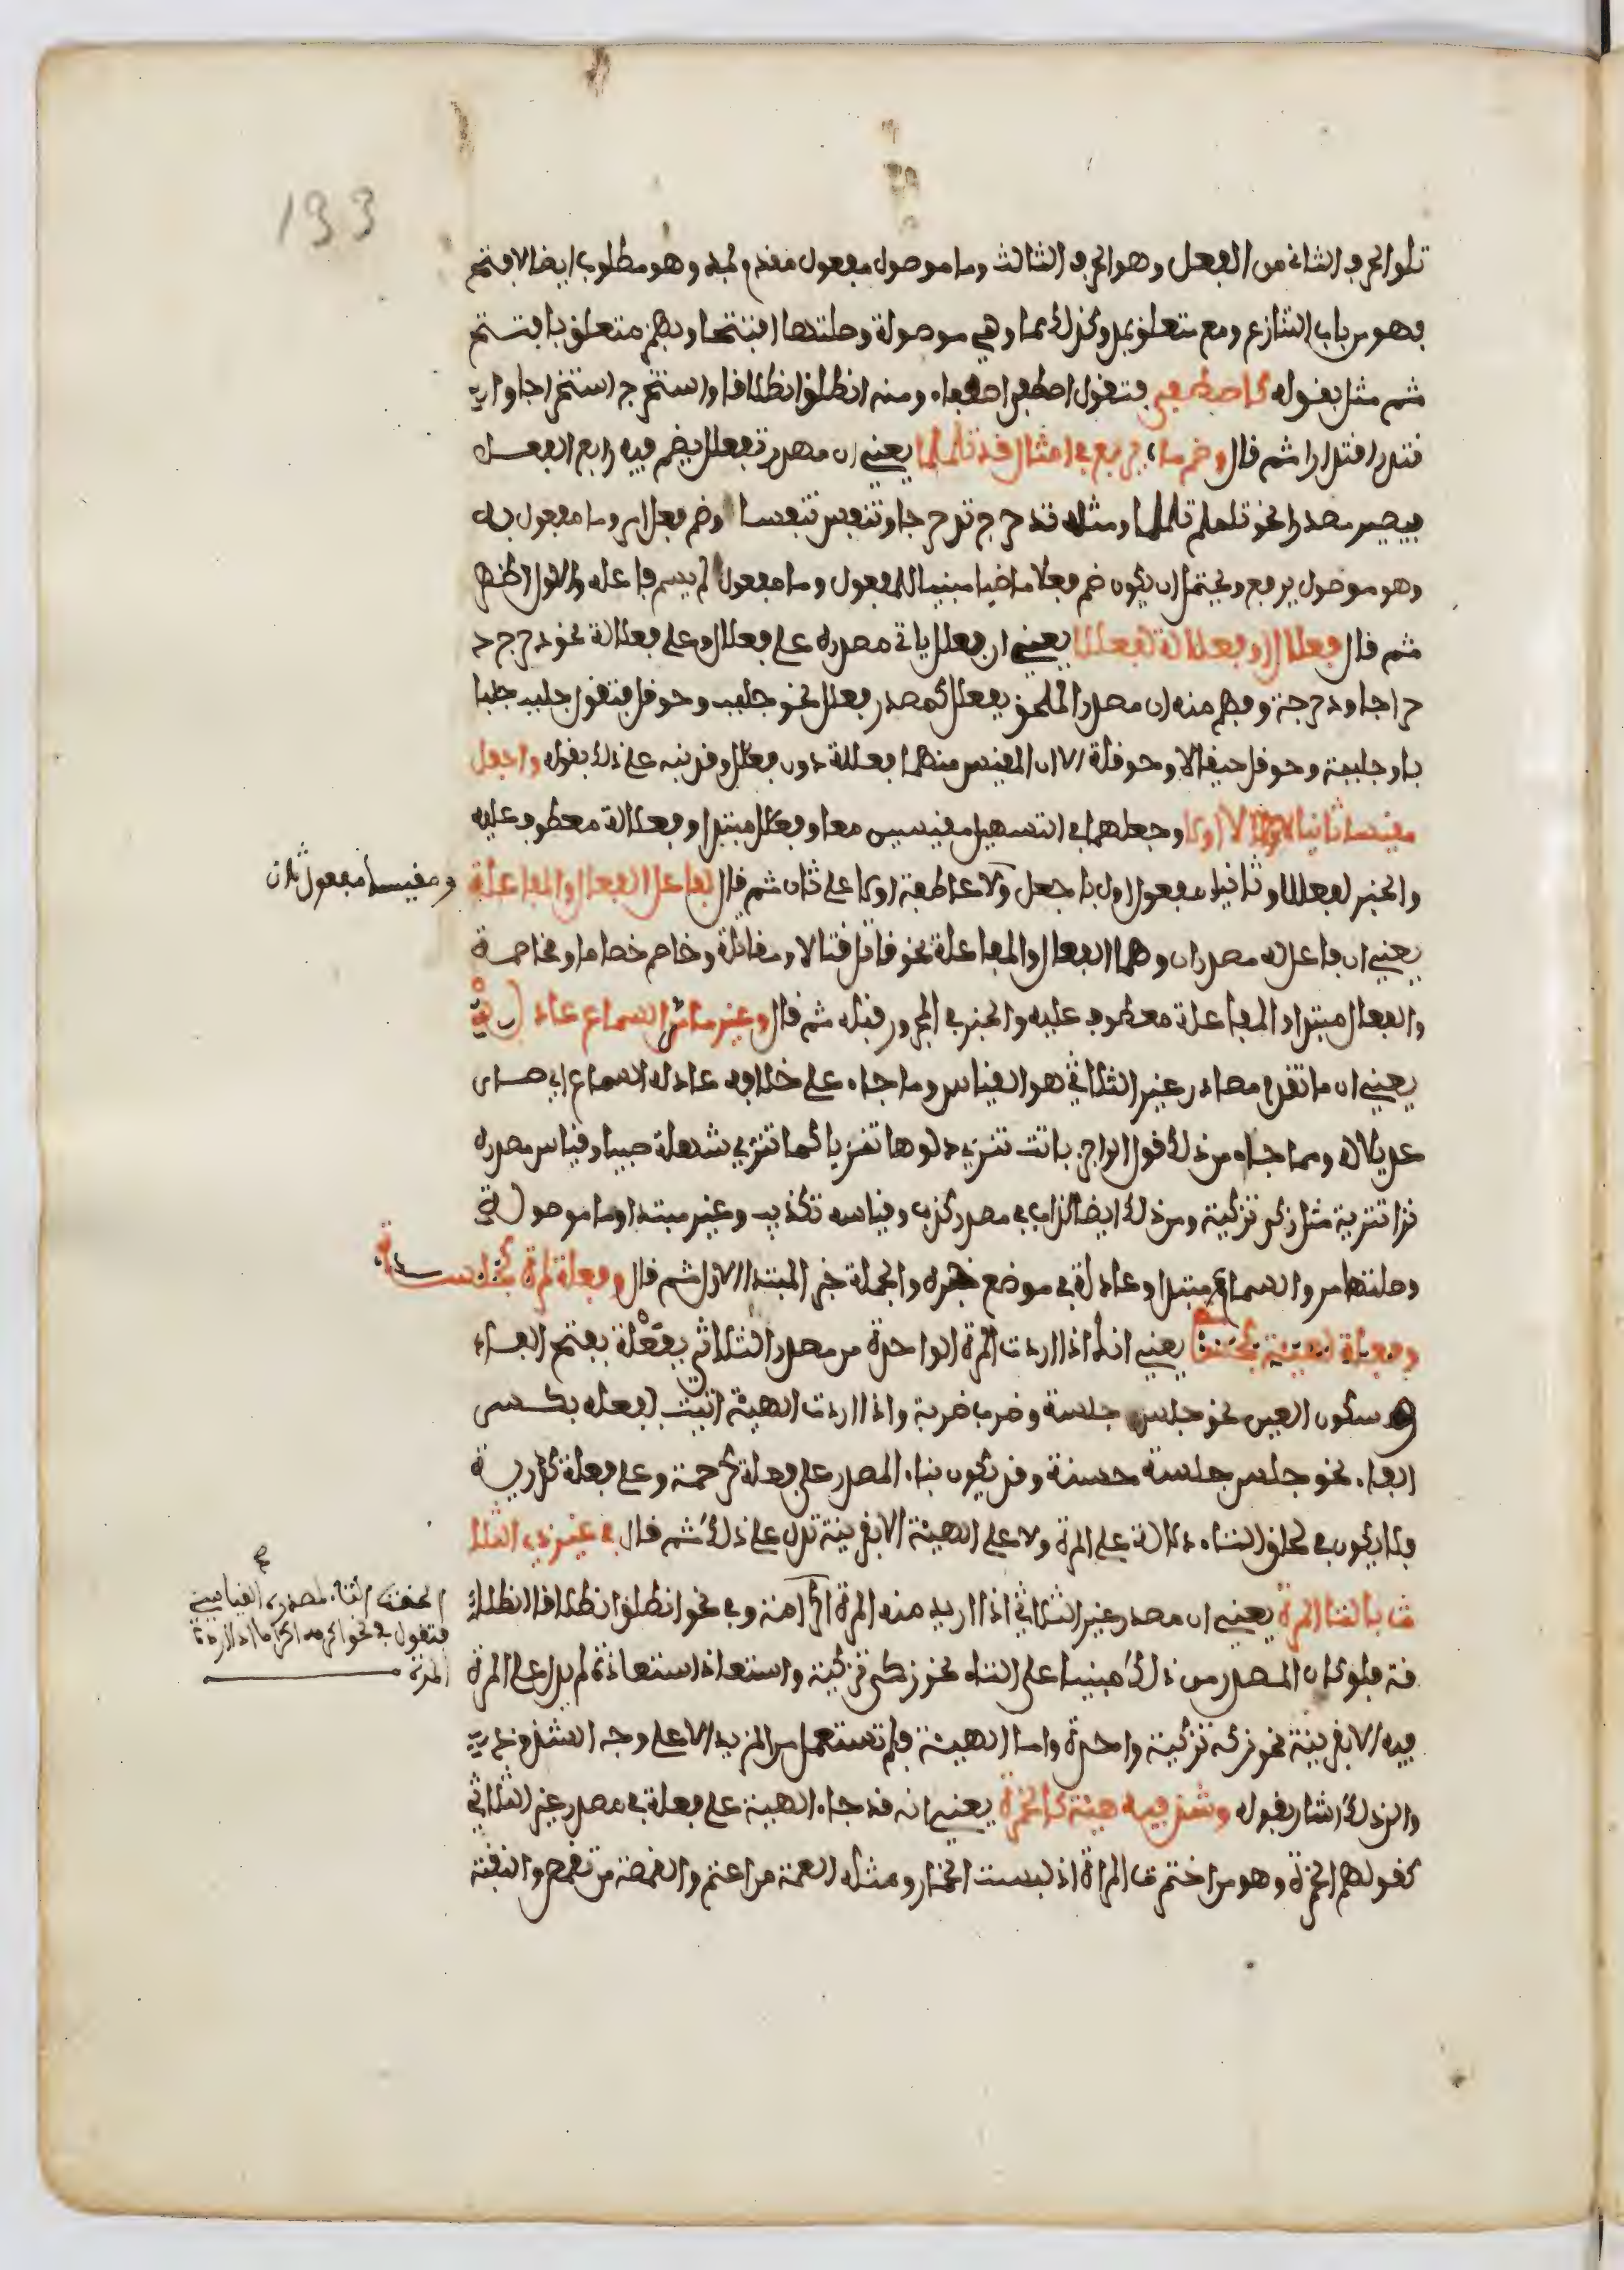 133
تلو الحرف الثاني من الفعل وهو الحرف الثالث وما موصول مفعول مقدم لمد وهو مطلوب ايضا لافتح
فهو من باب التنازع ومع متعلق بمد وكذلك مما وهي موصولة وصلتها افتتحا وبهمز متعلق بافتتح
ثم مثل بقوله كاصطفى فتقول اصطفى اصطفاء ومنه انطلق انطلاقا واستخرج استخراجا و
اقتدر اقتدارا ثم قال وضم ما يربع في امثال قد تلملما يعني ان مصدر تفعلل يضم فيه رابع الفعل
فيصير مصدرا نحو تلملم تلملما ومثله تدحرج تدحرجا وتنفس تنفسا وضم فعل امر وما مفعول به
وهو موصول يربع ويحتمل ان يكون ضم فعلا ماضيا مبنيا للمفعول وما مفعول لم يسم فاعله والاول اظهر
ثم قال فعلال او فعللة لفعللا يعني ان فعلل ياتي مصدره على فعلال وعلى فعللة نحو دحرج د
حراجا ودحرجة وفهم منه ان مصدر الملحق بفعلل كمصدر فعلل نحو جلبب وحوقل فتقول جلبب جلبا
با وجلببة وحوقل حيقالا وحوقلة الا ان المقيس منهما فعللة دون فعلال وقد نبه على ذلك بقوله واجعل
مقيسا ثانيا لا اولا وجعلهما في التسهيل مقيسين معا وفعلال مبتدا وفعللة معطوف عليه
والخبر لفعللا وثانيا مفعول اول باجعل ولا عاطفة اولا على ثان ثم قال لفاعل الفعال والمفاعلة
ومقيسا مفعول ثان
يعني ان فاعل له مصدران وهما الفعال والمفاعلة نحو قاتل قتالا ومقاتلة وخاصم خصاما ومخاصمة
والفعال مبتدا والمفاعلة معطوف عليه والخبر في المجرور قبله ثم قال وغير ما مر السماع عادله
يعني ان ما تقدم مصادر غير الثلاثي هو القياس وما جاء على خلافه عادله السماع اي صار
عديلا له ومما جاء من ذلك قول الراجز باتت تنزي دلوها تنزيا كما تنزي شهلة صبيا وقياس مصدره
نزا تنزية مثل زكى تزكية ومن ذلك ايضا كذابا في مصدر كذب وقياسه تكذيب وغير مبتدا وما موصولة
وصلتها مر والسماع مبتدا وعادله في موضع خبره والجملة خبر المبتدا الاول ثم قال وفعلة لمرة كجلسة
وفعلة لهيئة كجلسة يعني انك اذا اردت المرة الواحدة من مصدر الثلاثي بفعلة بفتح الفاء
وسكون العين نحو جلس جلسة وضرب ضربة واذا اردت الهيئة اتيت بفعلة بكسر
الفاء نحو جلس جلسة حسنة وقد يكون بناء المصدر على فعلة كرحمة وعلى فعلة كدرية
فلا يكون في لحاق التاء دلالة على المرة ولا على الهيئة الا بقرينة تدل على ذلك ثم قال في غير ذي الثلا
ث بالتا المرة يعني ان مصدر غير الثلاثي اذا اريد منه المرة الحقته التاء لمصدره القياسي
فتقول في نحو اكرم اكرامة اذا اردت
المرة
وفي نحو انطلق انطلاقا انطلا
قة فلو كان المصدر من ذلك مبنيا على التاء نحو زكى تزكية واستعاذ استعاذة لم يدل على المرة
فيه الا بقرينة نحو زكى تزكية واحدة واما الهيئة فلم تستعمل من المزيد الا على وجه الشذوذ
والى ذلك اشار بقوله وشذ فيه هيئة كالخمرة يعني انه قد جاء الهيئة على فعلة في مصدر غير الثلاثي
كقولهم الخمرة وهو من اختمرت المراة اذا لبست الخمار ومثله العمة من اعتم والقمصة من تقمص والنقبة